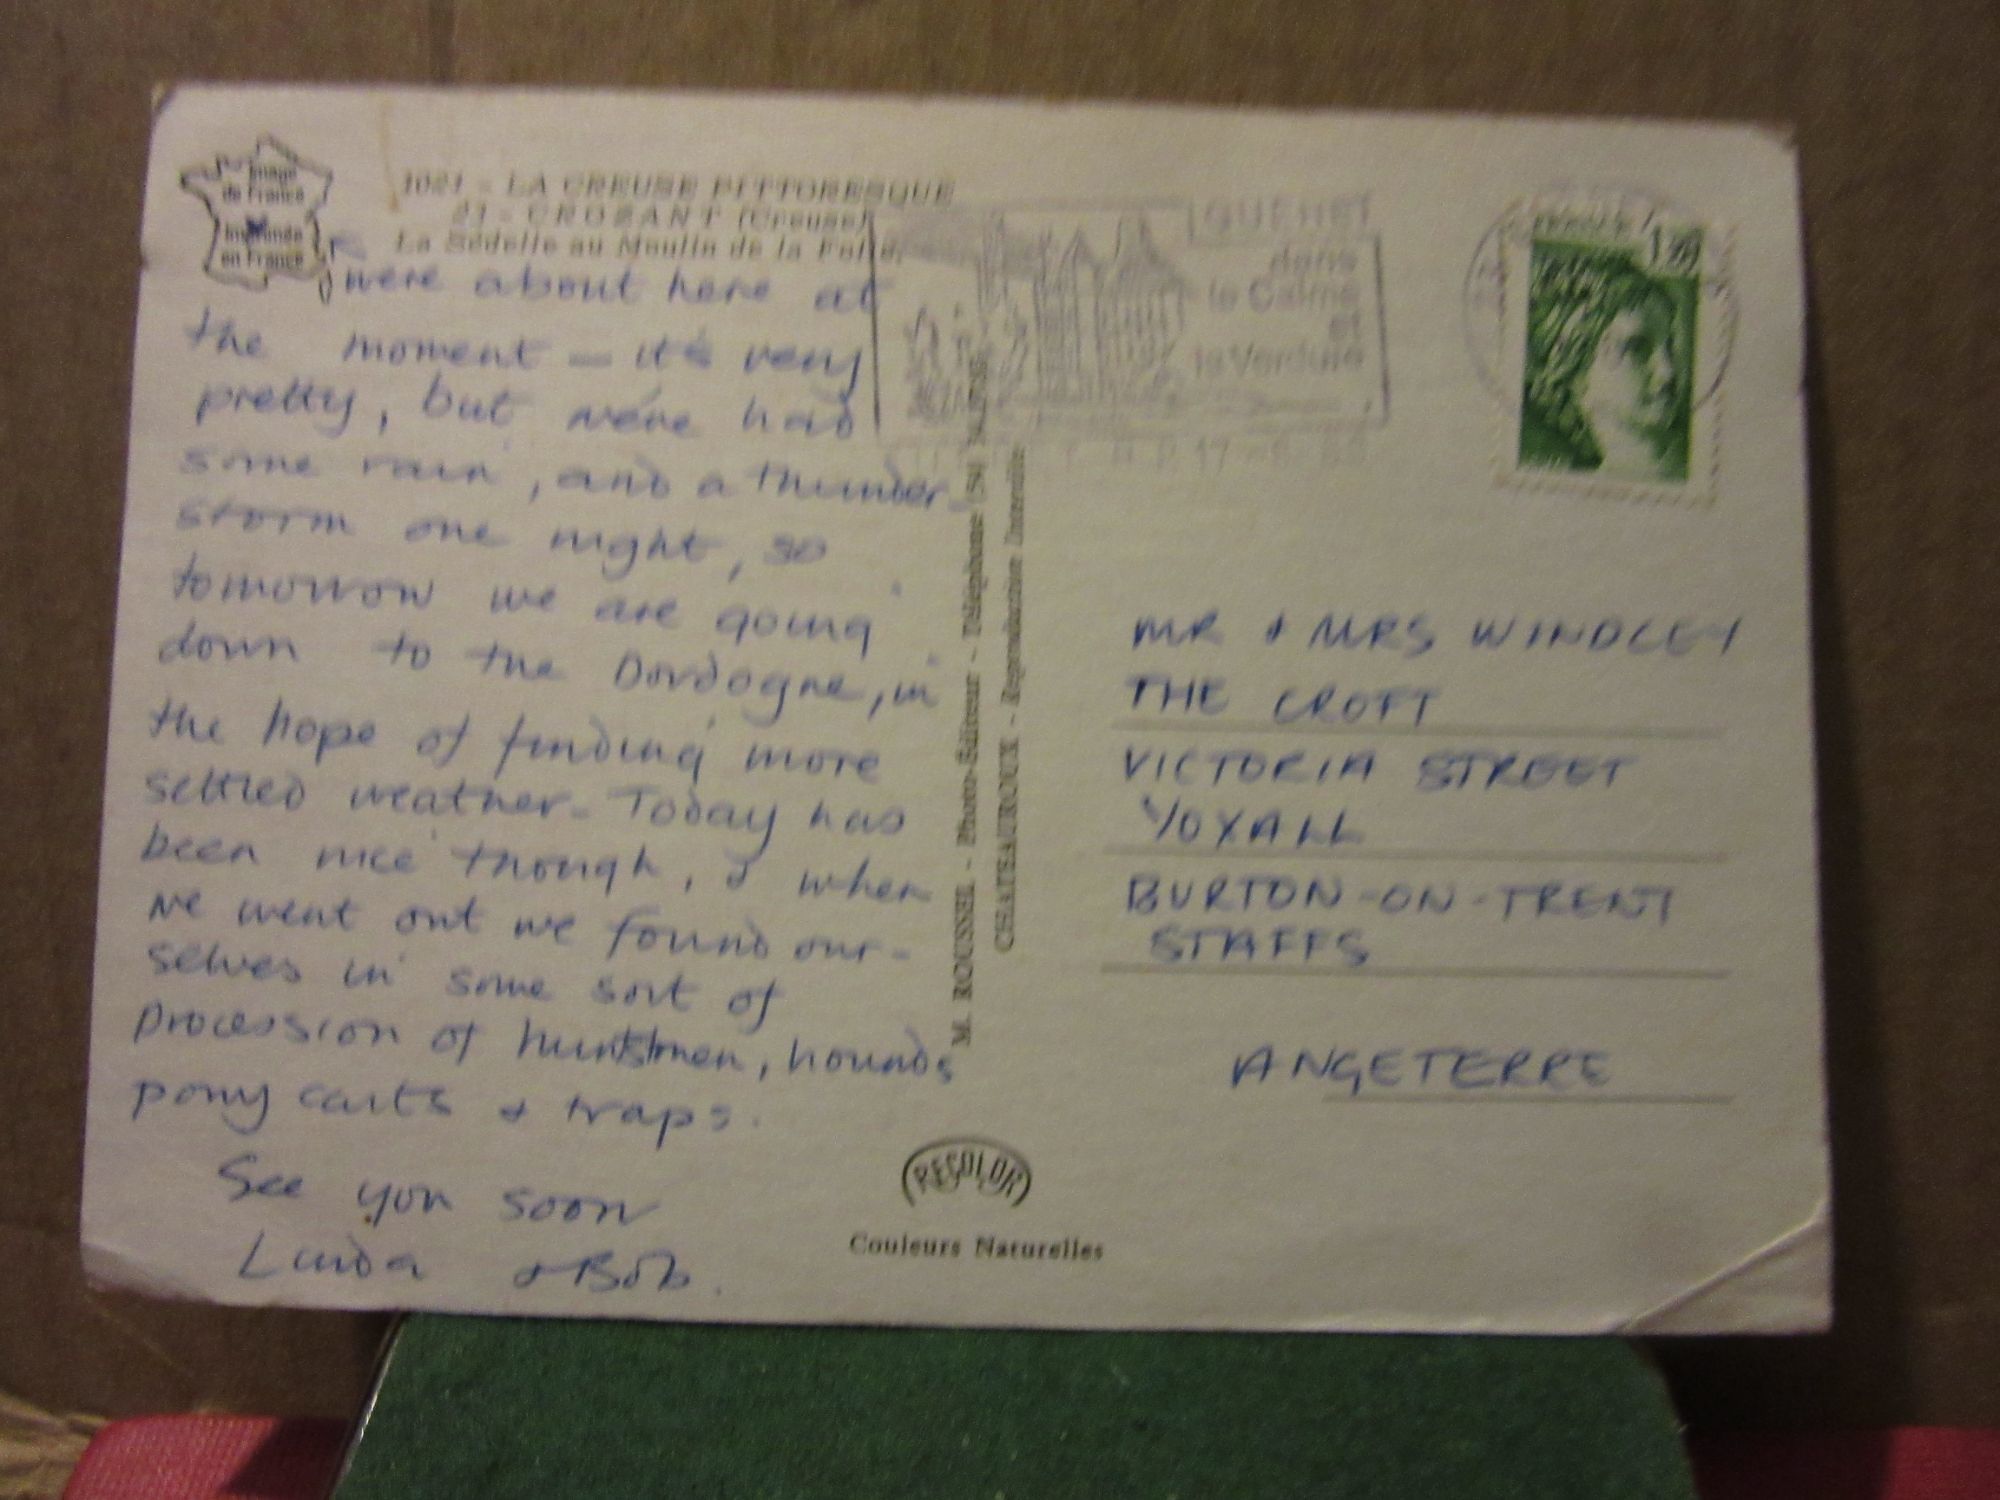 Image
de France
Imprimée
en France
1021 - LA CREUSE PITTORESQUE
21 - CROZANT (Creuse)
La Sédelle au Moulin de la Folie
were about here at
the moment - it's very
pretty, but we've had
some rain, and a thunder-
storm one night, so
tomorrow we are going
down to the Dordogne, in
the hope of finding more
settled weather. Today has
been nice though, & when
we went out we found our-
selves in some sort of
procession of huntsmen, hounds
pony carts & traps.
See you soon
Linda & Bob.
M. ROUSSEL - Photo-Éditeur - Téléphone (54)
CHATEAUROUX - Reproduction Interdite
RECOLOR
Couleurs Naturelles
GUERET
dans
le Calme
et
la Verdure
1,20
MR & MRS WINDLEY
THE CROFT
VICTORIA STREET
YOXALL
BURTON-ON-TRENT
STAFFS
ANGETERRE